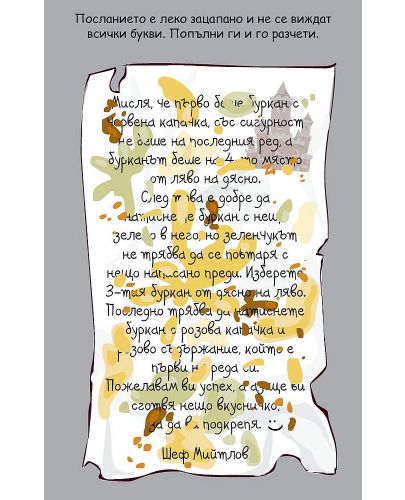 Посланието е леко зацапано и не се виждат
всички букви. Попълни ги и го разчети.
Мисля, че първо беше буркан с
червена капачка, със сигурност
не беше на последния ред, а
бурканът беше на 4-то място
от ляво на дясно.
След това е добре да
натиснете буркан с нещо
зелено в него, но зеленчукът
не трябва да се повтаря с
нещо написано преди. Изберете
3-тия буркан от дясно на ляво.
Последно трябва да натиснете
буркан с розова капачка и
розово съдържание, който е
първи на реда си.
Пожелавам ви успех, а аз ще ви
сготвя нещо вкусничко,
за да ви подкрепя.
Шеф Мийтлов